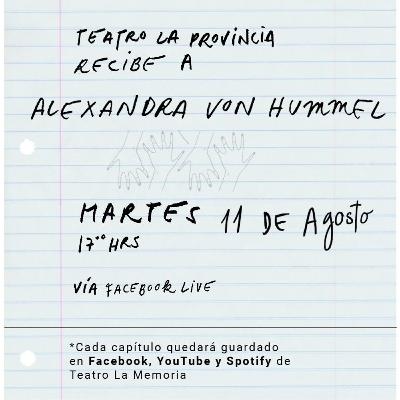 TEATRO LA PROVINCIA
RECIBE A
ALEXANDRA VON HUMMEL
MARTES 11 DE Agosto
17:00 HRS
VÍA FACEBOOK LIVE
*Cada capítulo quedará guardado
en Facebook, YouTube y Spotify de
Teatro La Memoria